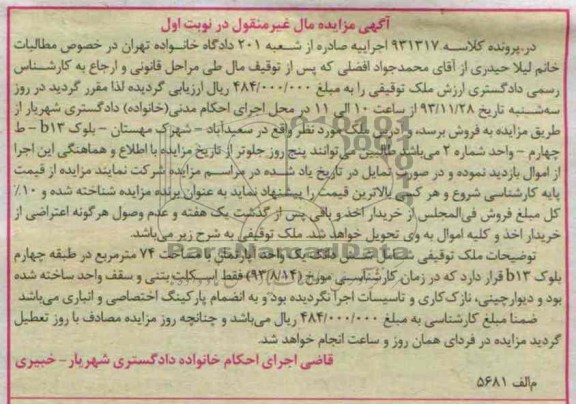 آگهی مزایده مال غیرمنقول در نوبت اول
در پرونده کلاسه ۹۳۱۳۱۷ اجراییه صادره از شعبه ۲۰۱ دادگاه خانواده تهران در خصوص مطالبات
خانم لیلا حیدری از آقای محمدجواد افضلی که پس از توقیف مال طی مراحل قانونی و ارجاع به کارشناس
رسمی دادگستری ارزش ملک توقیفی را به مبلغ ۴۸۴/۰۰۰/۰۰۰ ریال ارزیابی گردیده لذا مقرر گردید در روز
سه‌شنبه تاریخ ۹۳/۱۱/۲۸ از ساعت ۱۰ الی ۱۱ در محل اجرای احکام مدنی(خانواده) دادگستری شهریار از
طریق مزایده به فروش برسد، و آدرس ملک مورد نظر واقع در سعیدآباد - شهرک مهستان - بلوک b۱۳ - ط
چهارم - واحد شماره ۲ می‌باشد طالبین می‌توانند پنج روز جلوتر از تاریخ مزایده با اطلاع و هماهنگی این اجرا
از اموال بازدید نموده و در صورت تمایل در تاریخ یاد شده در مراسم مزایده شرکت نمایند مزایده از قیمت
پایه کارشناسی شروع و هر کس بالاترین قیمت را پیشنهاد نماید به عنوان برنده مزایده شناخته شده و ۱۰٪
کل مبلغ فروش فی‌المجلس از خریدار اخذ و باقی پس از گذشت یک هفته و عدم وصول هرگونه اعتراضی از
خریدار اخذ و کلیه اموال به وی تحویل خواهد شد. ملک توقیفی به شرح زیر می‌باشد.
توضیحات ملک توقیفی شامل شش دانگ یک واحد آپارتمان با مساحت ۷۴ مترمربع در طبقه چهارم
بلوک b۱۳ قرار دارد که در زمان کارشناسی مورخ (۹۳/۸/۱۴) فقط اسکلت بتنی و سقف واحد ساخته شده
بود و دیوارچینی، نازک‌کاری و تاسیسات اجرا نگردیده بود و به انضمام پارکینگ اختصاصی و انباری می‌باشد
ضمنا مبلغ کارشناسی به مبلغ ۴۸۴/۰۰۰/۰۰۰ ریال می‌باشد و چنانچه روز مزایده مصادف با روز تعطیل
گردید مزایده در فردای همان روز و ساعت انجام خواهد شد.
قاضی اجرای احکام خانواده دادگستری شهریار - خبیری
م‌الف ۵۶۸۱